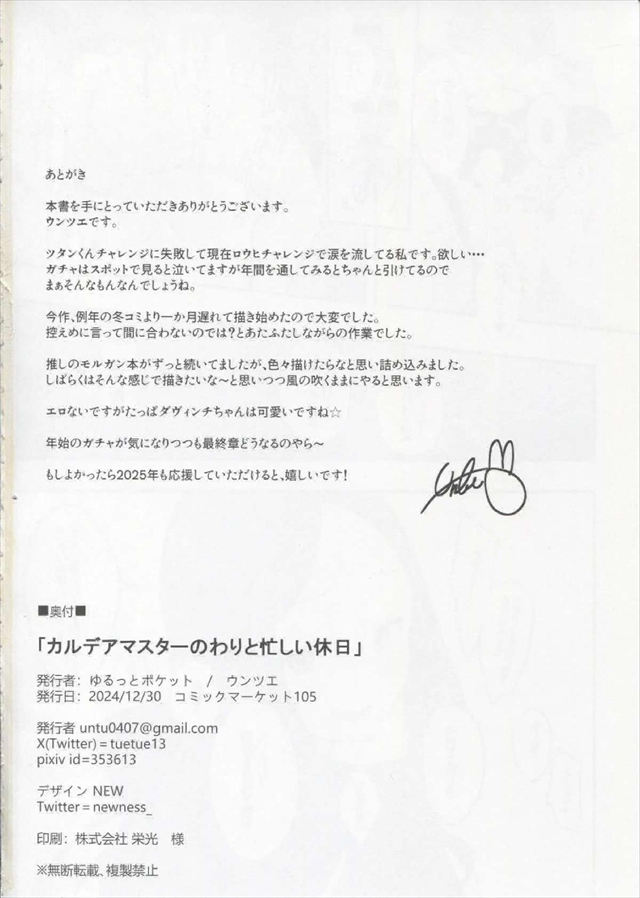 あとがき
本書を手にとっていただきありがとうございます。
ウンツエです。
ツタンくんチャレンジに失敗して現在ロウヒチャレンジで涙を流してる私です。欲しい…
ガチャはスポットで見ると泣いてますが年間を通してみるとちゃんと引けてるので
まぁそんなもんなんでしょうね。
今作、例年の冬コミより一か月遅れて描き始めたので大変でした。
控えめに言って間に合わないのでは?とあたふたしながらの作業でした。
推しのモルガン本がずっと続いてましたが、色々描けたらなと思い詰め込みました。
しばらくはそんな感じで描きたいな〜と思いつつ風の吹くままにやると思います。
エロないですがたっぱダヴィンチちゃんは可愛いですね☆
年始のガチャが気になりつつも最終章どうなるのやら〜
もしよかったら2025年も応援していただけると、嬉しいです!
■奥付■
「カルデアマスターのわりと忙しい休日」
発行者: ゆるっとポケット / ウンツエ
発行日: 2024/12/30 コミックマーケット105
発行者 untu0407@gmail.com
X(Twitter)=tuetue13
pixiv id=353613
デザイン NEW
Twitter=newness_
印刷: 株式会社 栄光 様
※無断転載、複製禁止